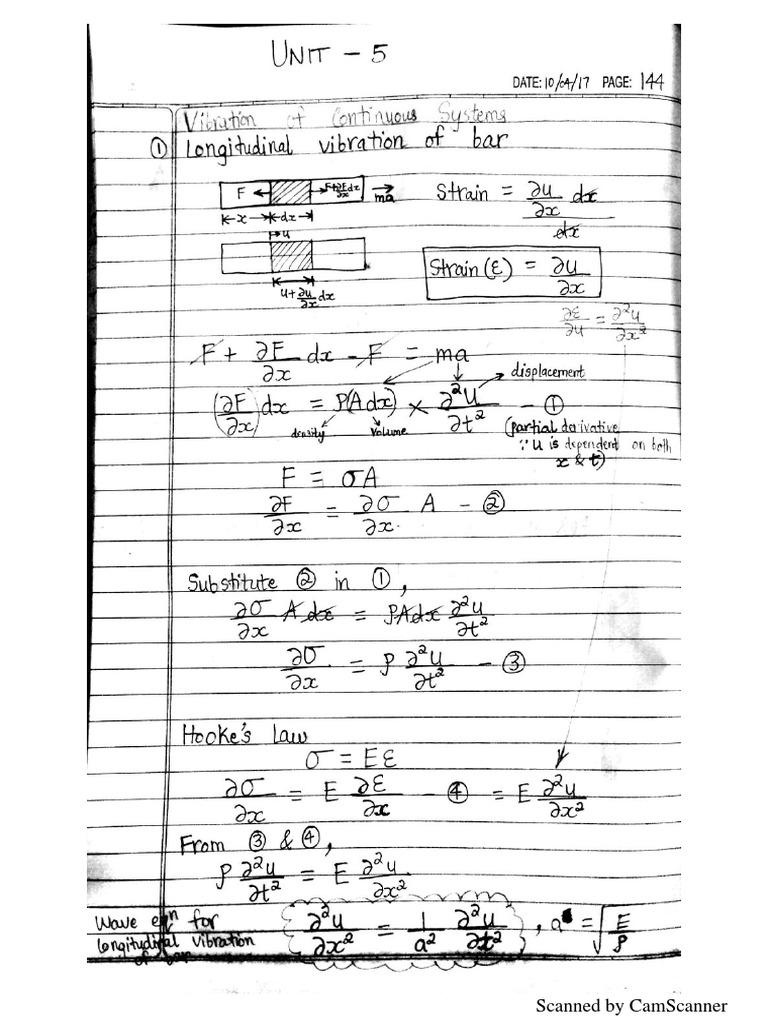 UNIT - 5
DATE: 10/04/17 PAGE: 144
Vibration of Continuous Systems
① Longitudinal vibration of bar
F F+∂F/∂x dx ma
x dx
u
u+∂u/∂x dx
Strain = ∂u/∂x dx / dx
Strain (ε) = ∂u/∂x
∂ε/∂u = ∂²u/∂x²
F + ∂F/∂x dx - F = ma
displacement
(∂F/∂x) dx = ρ(Adx) × ∂²u/∂t² - ①
density volume
(partial derivative
∵ u is dependent on both
x & t)
F = σA
∂F/∂x = ∂σ/∂x A - ②
Substitute ② in ①,
∂σ/∂x A dx = ρAdx ∂²u/∂t²
∂σ/∂x = ρ ∂²u/∂t² - ③
Hooke's Law
σ = Eε
∂σ/∂x = E ∂ε/∂x - ④ = E ∂²u/∂x²
From ③ & ④,
ρ ∂²u/∂t² = E ∂²u/∂x²
Wave eqn for
longitudinal vibration
of bar
∂²u/∂x² = 1/a² ∂²u/∂t² , a = √E/ρ
Scanned by CamScanner